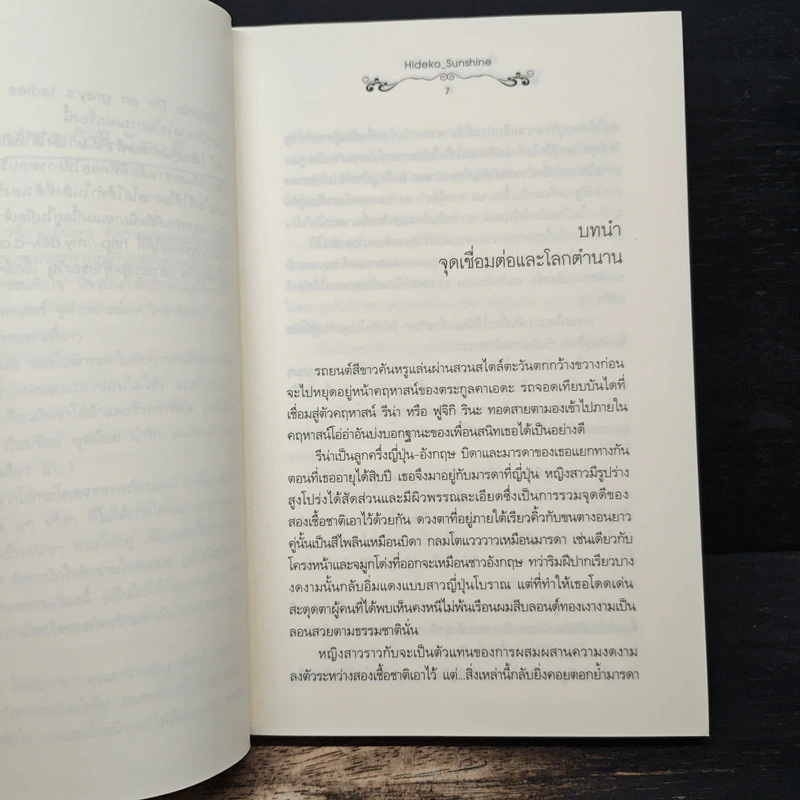 Hideko_Sunshine
7
บทนำ
จุดเชื่อมต่อและโลกตำนาน
รถยนต์สีขาวคันหรูแล่นผ่านสวนสไตล์ตะวันตกกว้างขวางก่อน
จะไปหยุดอยู่หน้าคฤหาสน์ของตระกูลคาเอดะ รถจอดเทียบบันไดที่
เชื่อมสู่ตัวคฤหาสน์ รีน่า หรือ ฟูจิกิ รินะ ทอดสายตามองเข้าไปภายใน
คฤหาสน์โอ่อ่าอันบ่งบอกฐานะของเพื่อนสนิทเธอได้เป็นอย่างดี
รีน่าเป็นลูกครึ่งญี่ปุ่น-อังกฤษ บิดาและมารดาของเธอแยกทางกัน
ตอนที่เธออายุได้สิบปี เธอจึงมาอยู่กับมารดาที่ญี่ปุ่น หญิงสาวมีรูปร่าง
สูงโปร่งได้สัดส่วนและมีผิวพรรณละเอียดซึ่งเป็นการรวมจุดดีของ
สองเชื้อชาติเอาไว้ด้วยกัน ดวงตาที่อยู่ภายใต้เรียวคิ้วกับขนตางอนยาว
คู่นั้นเป็นสีไพลินเหมือนบิดา กลมโตแวววาวเหมือนมารดา เช่นเดียวกับ
โครงหน้าและจมูกโด่งที่ออกจะเหมือนชาวอังกฤษ ทว่าริมฝีปากเรียวบาง
งดงามนั้นกลับอิ่มแดงแบบสาวญี่ปุ่นโบราณ แต่ที่ทำให้เธอโดดเด่น
สะดุดตาผู้คนที่ได้พบเห็นคงหนีไม่พ้นเรือนผมสีบลอนด์ทองเงางามเป็น
ลอนสวยตามธรรมชาตินั่น
หญิงสาวราวกับจะเป็นตัวแทนของการผสมผสานความงดงาม
ลงตัวระหว่างสองเชื้อชาติเอาไว้ แต่...สิ่งเหล่านี้กลับยิ่งคอยตอกย้ำมารดา